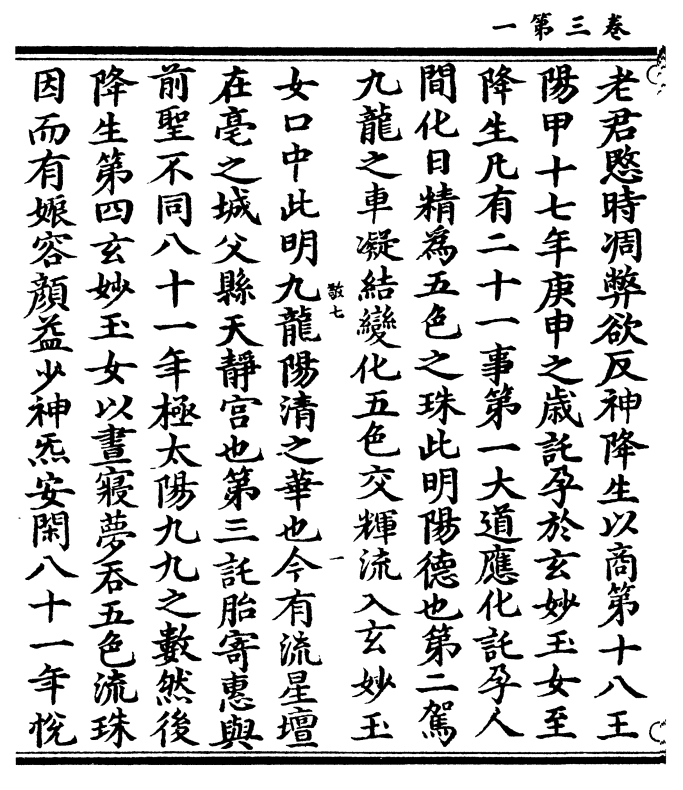 卷三第一
老君愍時凋弊欲反神降生以商第十八王
陽甲十七年庚申之歲託孕於玄妙玉女至
降生凡有二十一事第一大道應化託孕人
間化日精為五色之珠此明陽德也第二駕
九龍之車凝結變化五色交輝流入玄妙玉
敢七
一
女口中此明九龍陽清之華也今有流星壇
在亳之城父縣天靜宮也第三託胎寄惠與
前聖不同八十一年極太陽九九之數然後
降生第四玄妙玉女以晝寢夢吞五色流珠
因而有娠容顏益少神炁安閑八十一年悅